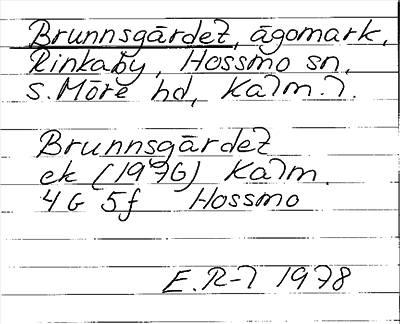 Brunnsgärdet, ägomark,
Rinkaby, Hossmo sn,
S. Möre hd, Kalm. l.
Brunnsgärdet
ek (1976) Kalm.
4G 5f Hossmo
E. R-l 1978